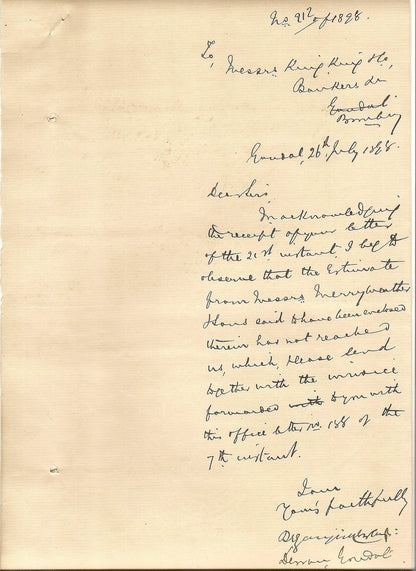 No. 912 of 1898.
To,
Messrs King, King & Co,
Bankers &c
Gondal
Bombay
Gondal, 26th July 1898.
Dear Sirs
In acknowledging
the receipt of your letter
of the 21st instant, I beg to
observe that the Estimate
from Messrs Merryweather
& Sons said to have been enclosed
therein has not reached
us, which, please send
together with the invoice
forwarded with to you with
this office letter no. 188 of the
7th instant.
I am
Yours faithfully
Dewan, Gondal